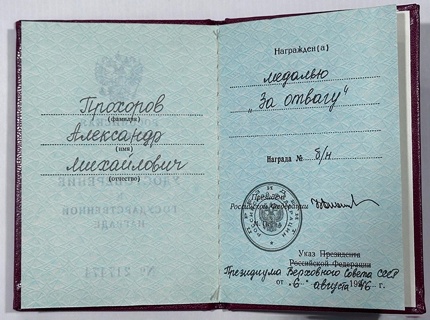 Прохоров
(фамилия)
Александр
(имя)
Михайлович
(отчество)
Награжден(а)
медалью
„За отвагу“
Награда № б/н
Президент
Российской Федерации
Указ Президента
Российской Федерации
Президиума Верховного Совета СССР
от „6“ августа 1946 г.